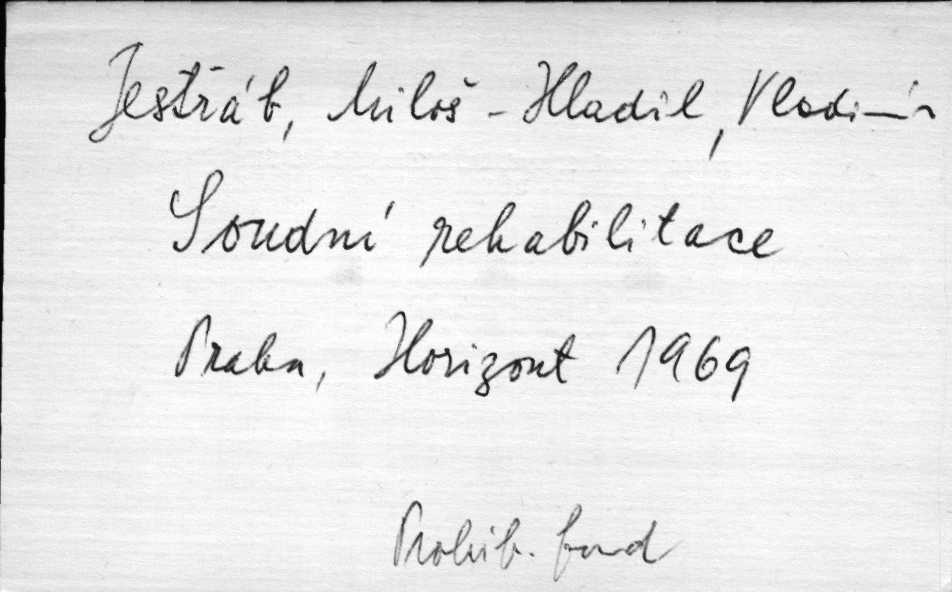 Jestřáb, Miloš - Hladil, Vladimír
Soudní rehabilitace
Praha, Horizont 1969
Prohib. fond